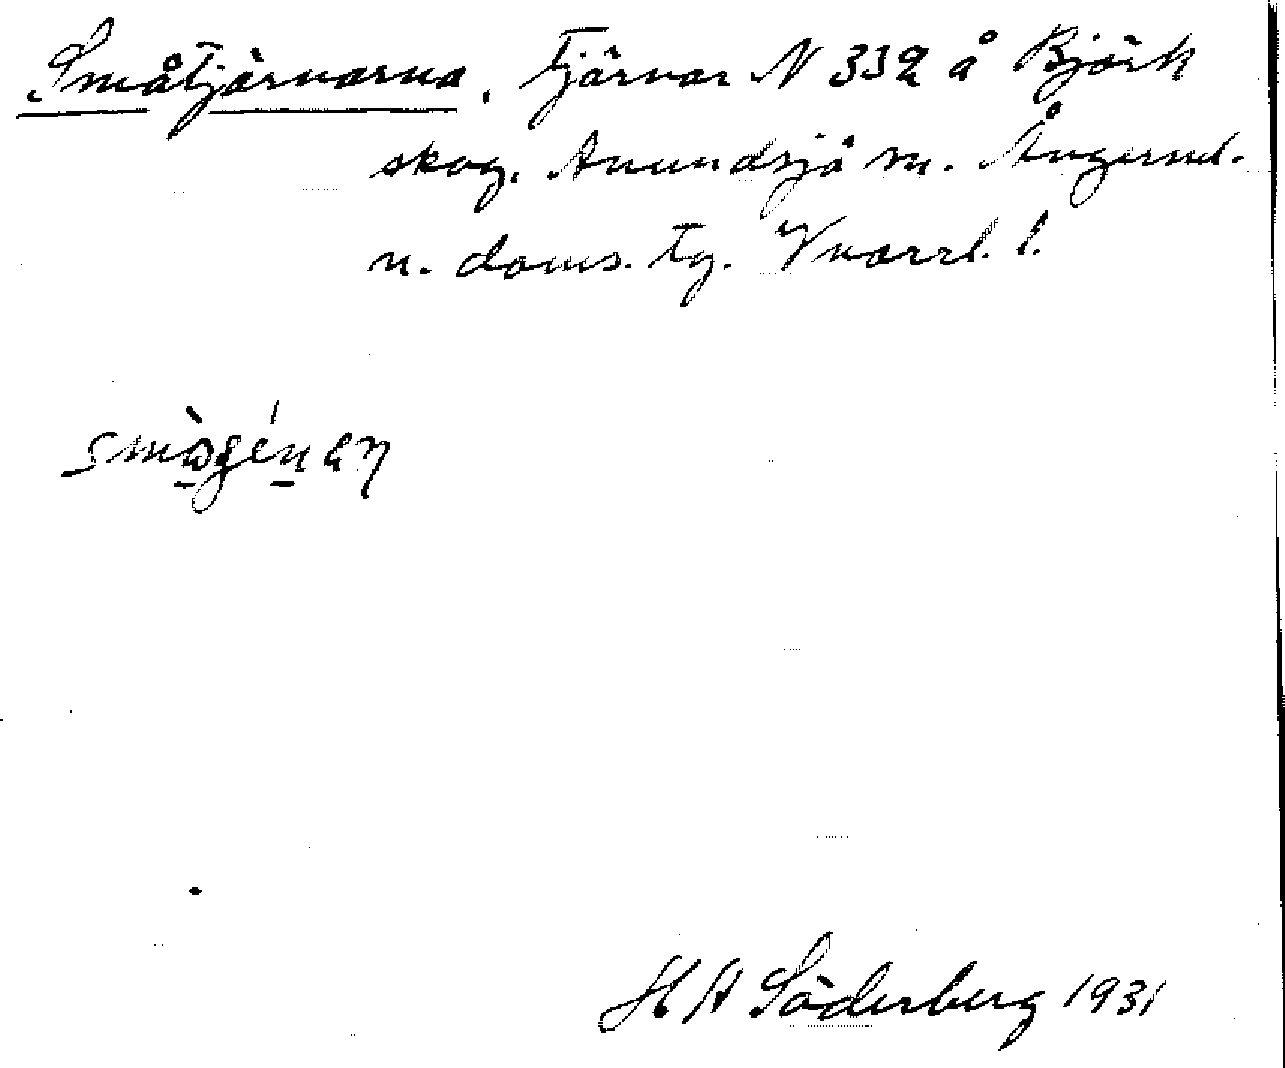 Småtjärnarna, Tjärnar N 332 å Björk
skog. Anundsjö sn. Ångerml.
n. doms. tg. Vnorrl. l.
H A Söderberg 1931